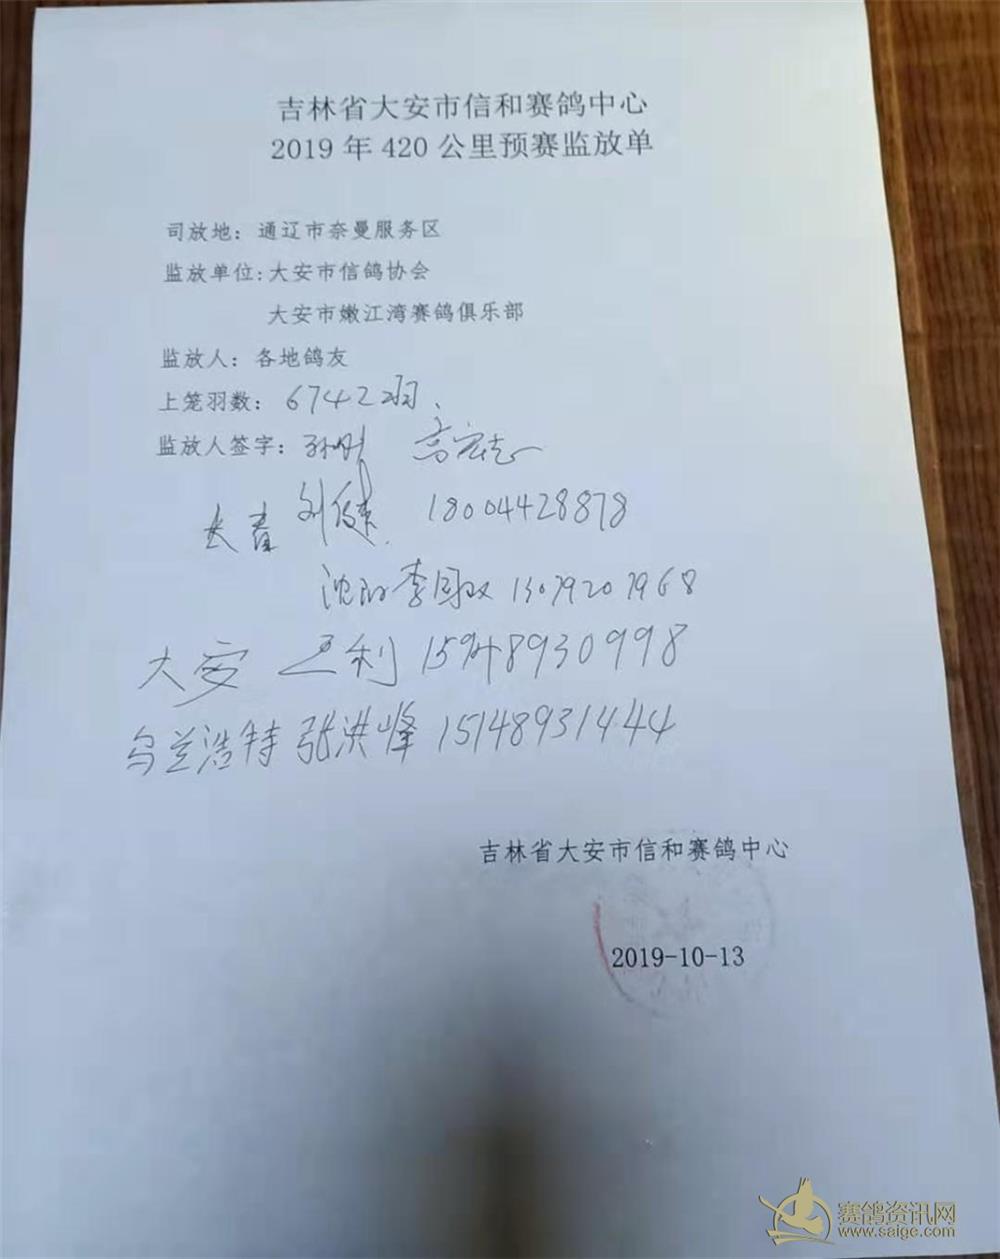 吉林省大安市信和赛鸽中心
2019 年 420 公里预赛监放单
司放地：通辽市奈曼服务区
监放单位:大安市信鸽协会
大安市嫩江湾赛鸽俱乐部
监放人：各地鸽友
上笼羽数：6742羽、
监放人签字： 高宏志
长春 刘健 18004428878
沈阳 李国双 13079207968
大安 王利 15948930998
乌兰浩特 张洪峰 15148931444
吉林省大安市信和赛鸽中心
2019-10-13
赛鸽资讯网
www.saige.com